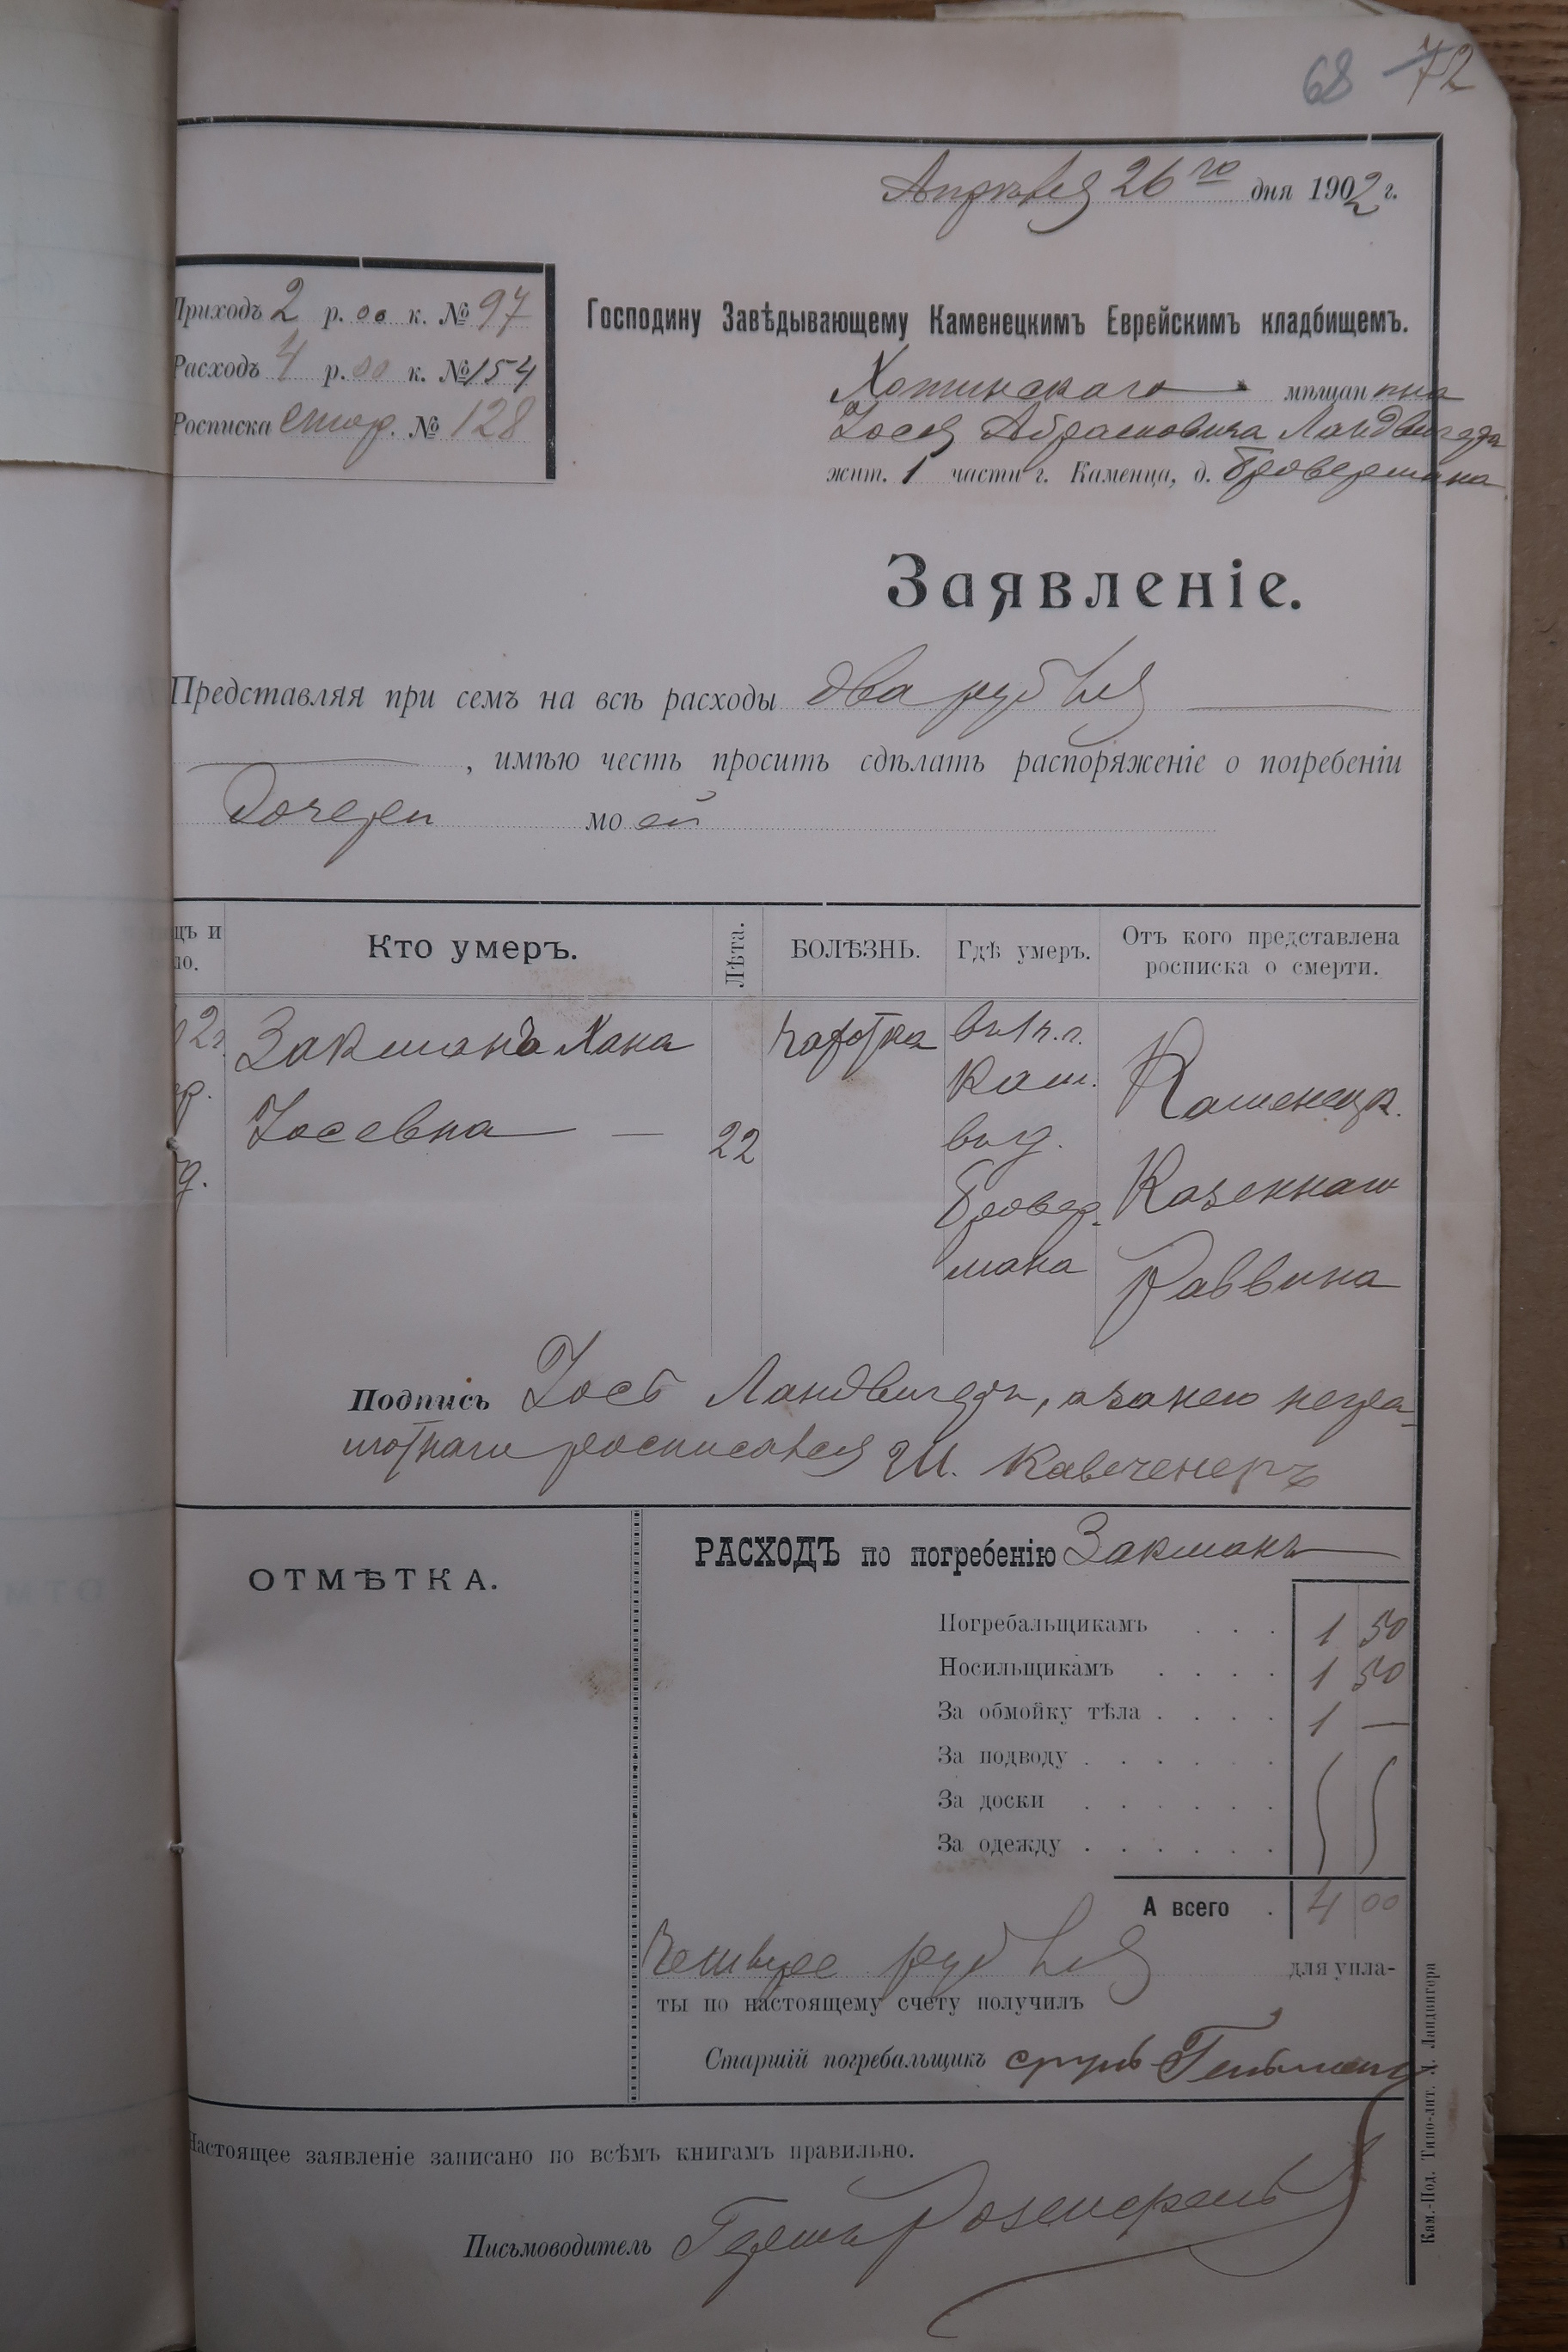 68 72
Апрѣля 26го дня 1902 г.
Приходъ 2 р. 00 к. № 97
Расходъ 4 р. 00 к. № 154
Росписка стор. № 128
Господину Завѣдывающему Каменецкимъ Еврейскимъ кладбищемъ.
Хотинскаго мѣщанина
Іося Абрамовича Ландвигера
жит. 1 части г. Каменца, д. Бровермана
Заявленіе.
Представляя при семъ на всѣ расходы два рубля
, имѣю честь просить сдѣлать распоряженіе о погребеніи
дочери моей
цъ и
ло.
Кто умеръ.
Лѣта.
БОЛѢЗНЬ.
Гдѣ умеръ.
Отъ кого представлена
росписка о смерти.
2г.
р.
д.
Закманъ Хана
Іосевна
22
Чахотка
въ 1 ч. г.
Кам.
въ д.
Бровер-
мана
Каменецк.
Казеннаго
Раввина
Подпись Іось Ландвигеръ, а за него негра-
мотнаго росписался Ш.
ОТМѢТКА.
РАСХОДЪ по погребенію Закманъ
Погребальщикамъ . . . 1 50
Носильщикамъ . . . . 1 50
За обмойку тѣла . . . . 1 —
За подводу . . . . . .
За доски . . . . . .
За одежду . . . . . .
А всего . 4 00
Четыре рубля для упла-
ты по настоящему счету получилъ
Старшій погребальщикъ
Настоящее заявленіе записано по всѣмъ книгамъ правильно.
Письмоводитель
Кам.-Под. Типо-лит. Л. Ландвигера